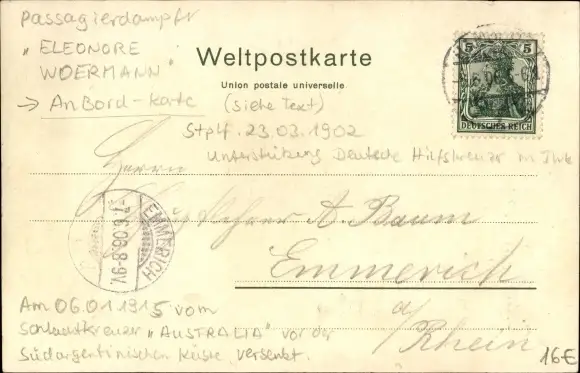 Passagierdampfer
"ELEONORE
WOERMANN"
→ An Bord-Karte
(siehe Text)
Weltpostkarte
Union postale universelle
5 5
DEUTSCHES REICH
Stplf. 23.03.1902
Unterstützung Deutsche Hilfskreuzer im
Herrn
A. Baum
Emmerich
a/
Rhein
EMMERICH
7.6.06.8-9V.
Am 06.01.1915 vom
Schlachtkreuzer "AUSTRALIA" vor der
Südargentinischen Küste versenkt.
16€